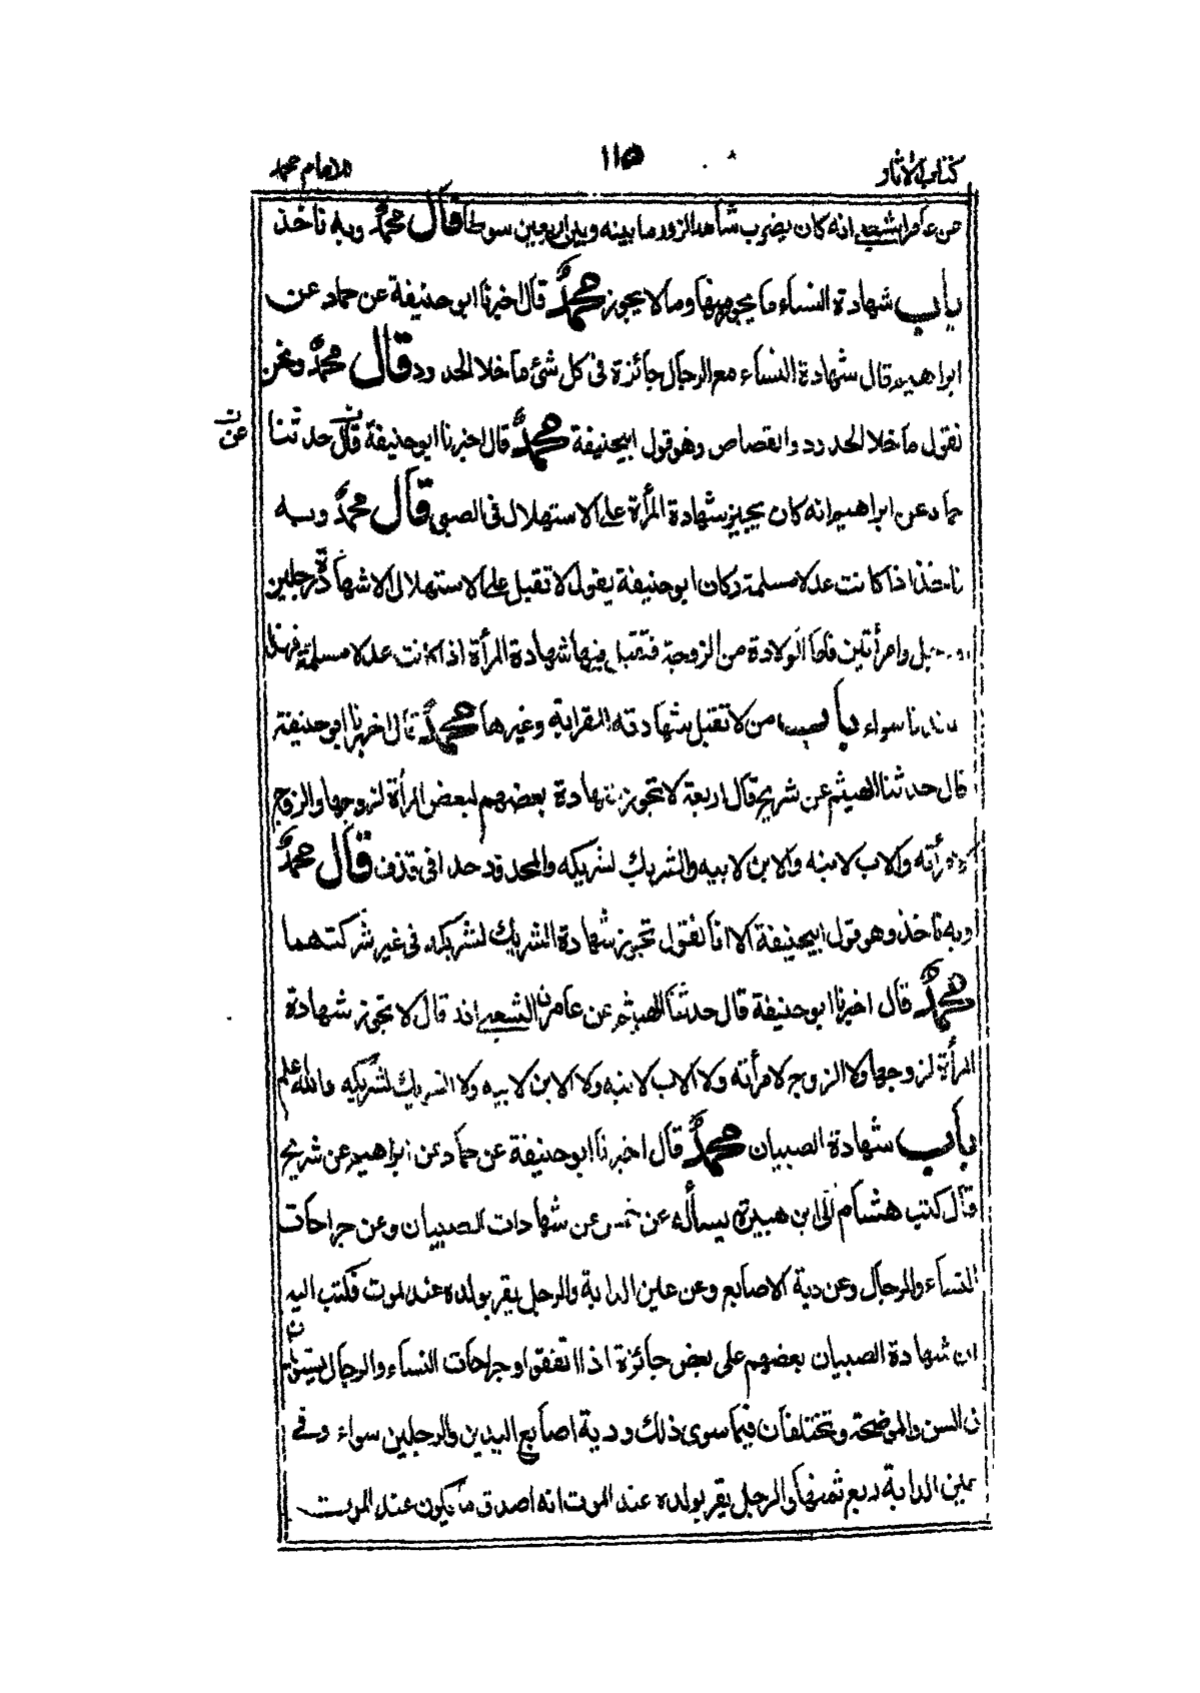 كتاب الآثار ١١٥ للامام محمد
عن عامر الشعبي انه كان يضرب شاهد الزور ما بينه وبين اربعين سوطا قال محمد وبه ناخذ
باب شهادة النساء ما يجوز منها وما لا يجوز محمد قال اخبرنا ابو حنيفة عن حماد عن
ابراهيم قال شهادة النساء مع الرجال جائزة فى كل شئ ما خلا الحدود قال محمد ونحن
نقول ما خلا الحدود والقصاص وهو قول ابيحنيفة محمد قال اخبرنا ابو حنيفة قال حدثنا
عن
حماد عن ابراهيم انه كان يجيز شهادة المرأة على الاستهلال فى الصبى قال محمد وبه
ناخذ اذا كانت عدلا مسلمة وكان ابو حنيفة يقول لا تقبل على الاستهلال الا شهادة رجلين
وامرأتين فاما الولادة من الزوجة فتقبل فيها شهادة المرأة اذا كانت عدلا مسلمة فهذا
سواء باب من لا تقبل شهادته للقرابة وغيرها محمد قال اخبرنا ابو حنيفة
قال حدثنا الهيثم عن شريح قال اربعة لا تجوز شهادة بعضهم لبعض المرأة لزوجها والزوج
لامرأته والاب لابنه والابن لابيه والشريك لشريكه والمحدود حدا فى قذف قال محمد
وبه ناخذ وهو قول ابيحنيفة الا انا نقول تجوز شهادة الشريك لشريكه فى غير شركتهما
محمد قال اخبرنا ابو حنيفة قال حدثنا الهيثم عن عامر الشعبي انه قال لا تجوز شهادة
المرأة لزوجها ولا الزوج لامرأته ولا الاب لابنه ولا الابن لابيه ولا الشريك لشريكه والله اعلم
باب شهادة الصبيان محمد قال اخبرنا ابو حنيفة عن حماد عن ابراهيم عن شريح
قال كتب هشام الى ابن هبيرة يسأله عن خمس عن شهادات الصبيان وعن جراحات
النساء والرجال وعن دية الاصابع وعن عين الدابة والرجل يقر بولده عند الموت فكتب اليه
ان شهادة الصبيان بعضهم على بعض جائزة اذا اتفقوا وجراحات النساء والرجال يستويان
فى السن والموضحة وتختلفان فيما سوى ذلك ودية اصابع اليدين والرجلين سواء وفى
عين الدابة ربع ثمنها والرجل يقر بولده عند الموت انه اصدق ما يكون عند الموت